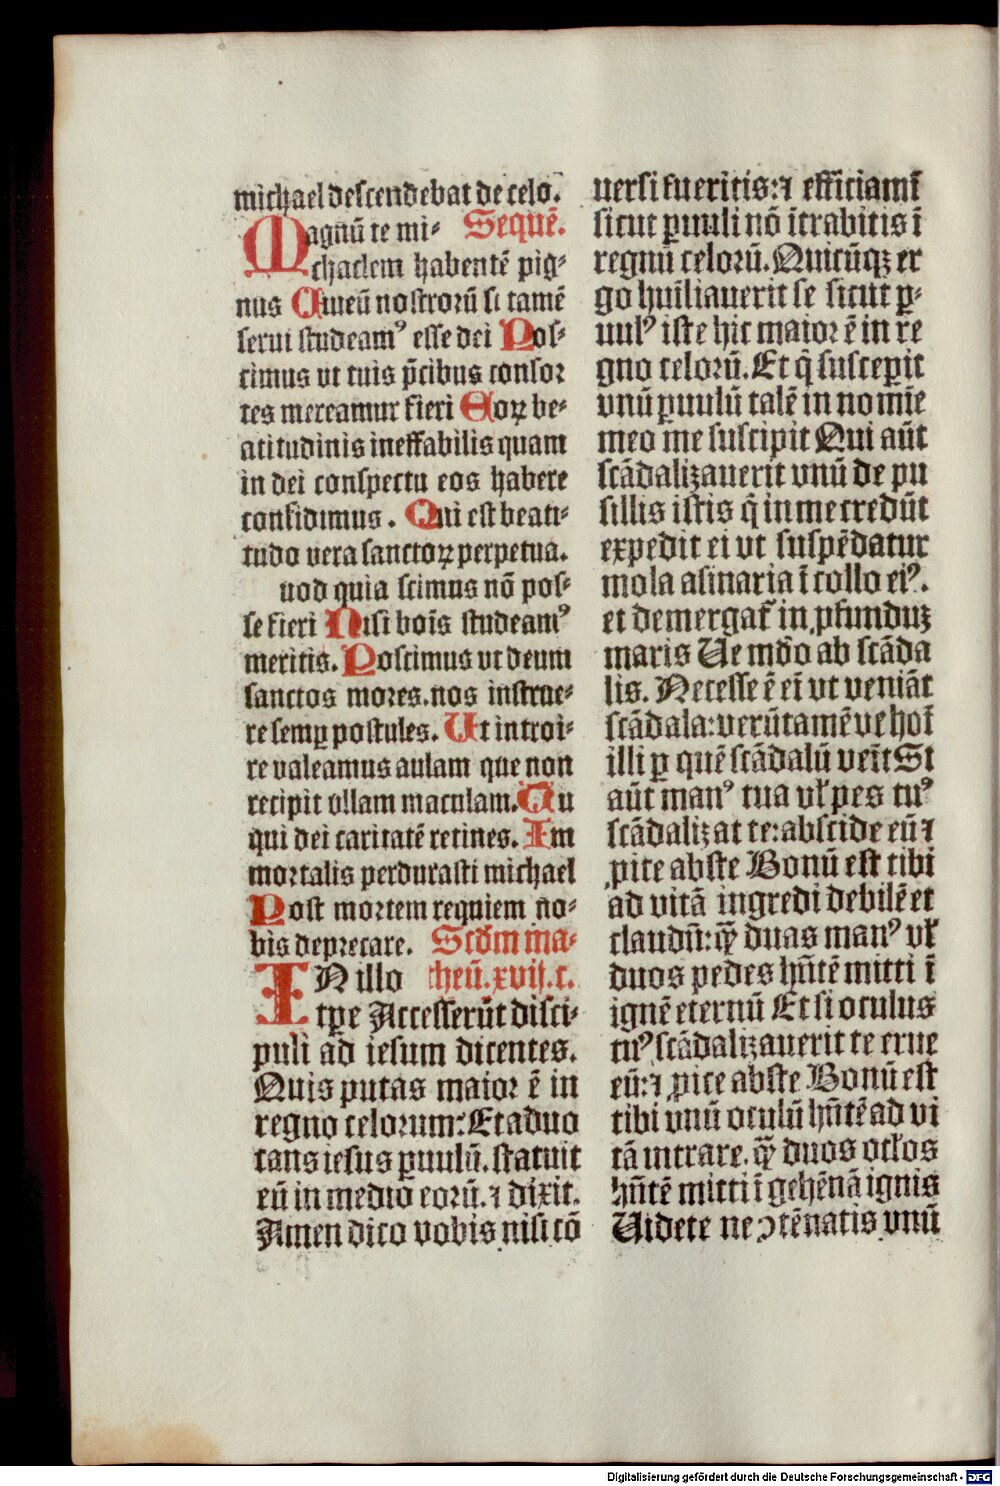 michael descendebat de celo.
Magnū te mi- Sequē.
chaelem habentē pig-
nus Q̄ueū nostrorū si tamē
serui studeamꝰ esse dei Pos-
cimus vt tuis p̄cibus consor
tes mereamur fieri Eoꝝ be-
atitudinis ineffabilis quam
in dei conspectu eos habere
confidimus. Qui est beati-
tudo vera sanctoꝝ perpetua.
uod quia scimus nō pos-
se fieri Nisi bōis studeamꝰ
meritis. Poscimus vt deum
sanctos mores. nos instrue-
re semꝑ postules. Ut introi-
re valeamus aulam que non
recipit vllam maculam. Qu
qui dei caritatē retines. Im
mortalis perdurasti michael
Post mortem requiem no-
bis deprecare. Scd̄m ma-
IN illo theū. xvij. c.
tꝑe Accesserūt disci-
puli ad iesum dicentes.
Quis putas maior ē in
regno celorum: Et aduo
cans iesus ꝑuulū. statuit
eū in medio eorū. ⁊ dixit.
Amen dico vobis nisi cō
uersi fueritis: ⁊ efficiamī
sicut ꝑuuli nō ītrabitis ī
regnū celorū. Quicūqꝫ er
go huīliauerit se sicut ꝑ-
uulꝰ iste hic maior ē in re
gno celorū. Et q̄ susceꝑit
vnū ꝑuulū talē in nomīe
meo me suscipit Qui aūt
scādalizauerit vnū de pu
sillis istis q̄ in me credūt
expedit ei vt suspēdatur
mola asinaria ī collo eiꝰ.
et demergat̄ in ꝓfunduꝫ
maris Ue mōdo ab scāda
lis. Necesse ē eī vt veniāt
scādala: verūtamē ve hoī
illi ꝑ quē scādalū veīt Si
aūt manꝰ tua vl̄ pes tuꝰ
scādalizat te: abscide eū ⁊
ꝓice abs te Bonū est tibi
ad vitā ingredi debilē et
claudū: qꝫ̄ duas manꝰ vl̄
duos pedes hn̄tē mitti ī
ignē eternū Et si oculus
tuꝰ scādalizauerit te erue
eū: ⁊ ꝓice abs te Bonū est
tibi vnū oculū hn̄tē ad vi
tā intrare. qꝫ̄ duos ocl̄os
hn̄tē mitti ī gehēnā ignis
Uidete ne ꝯtēnatis vnū
Digitalisierung gefördert durch die Deutsche Forschungsgemeinschaft - DFG